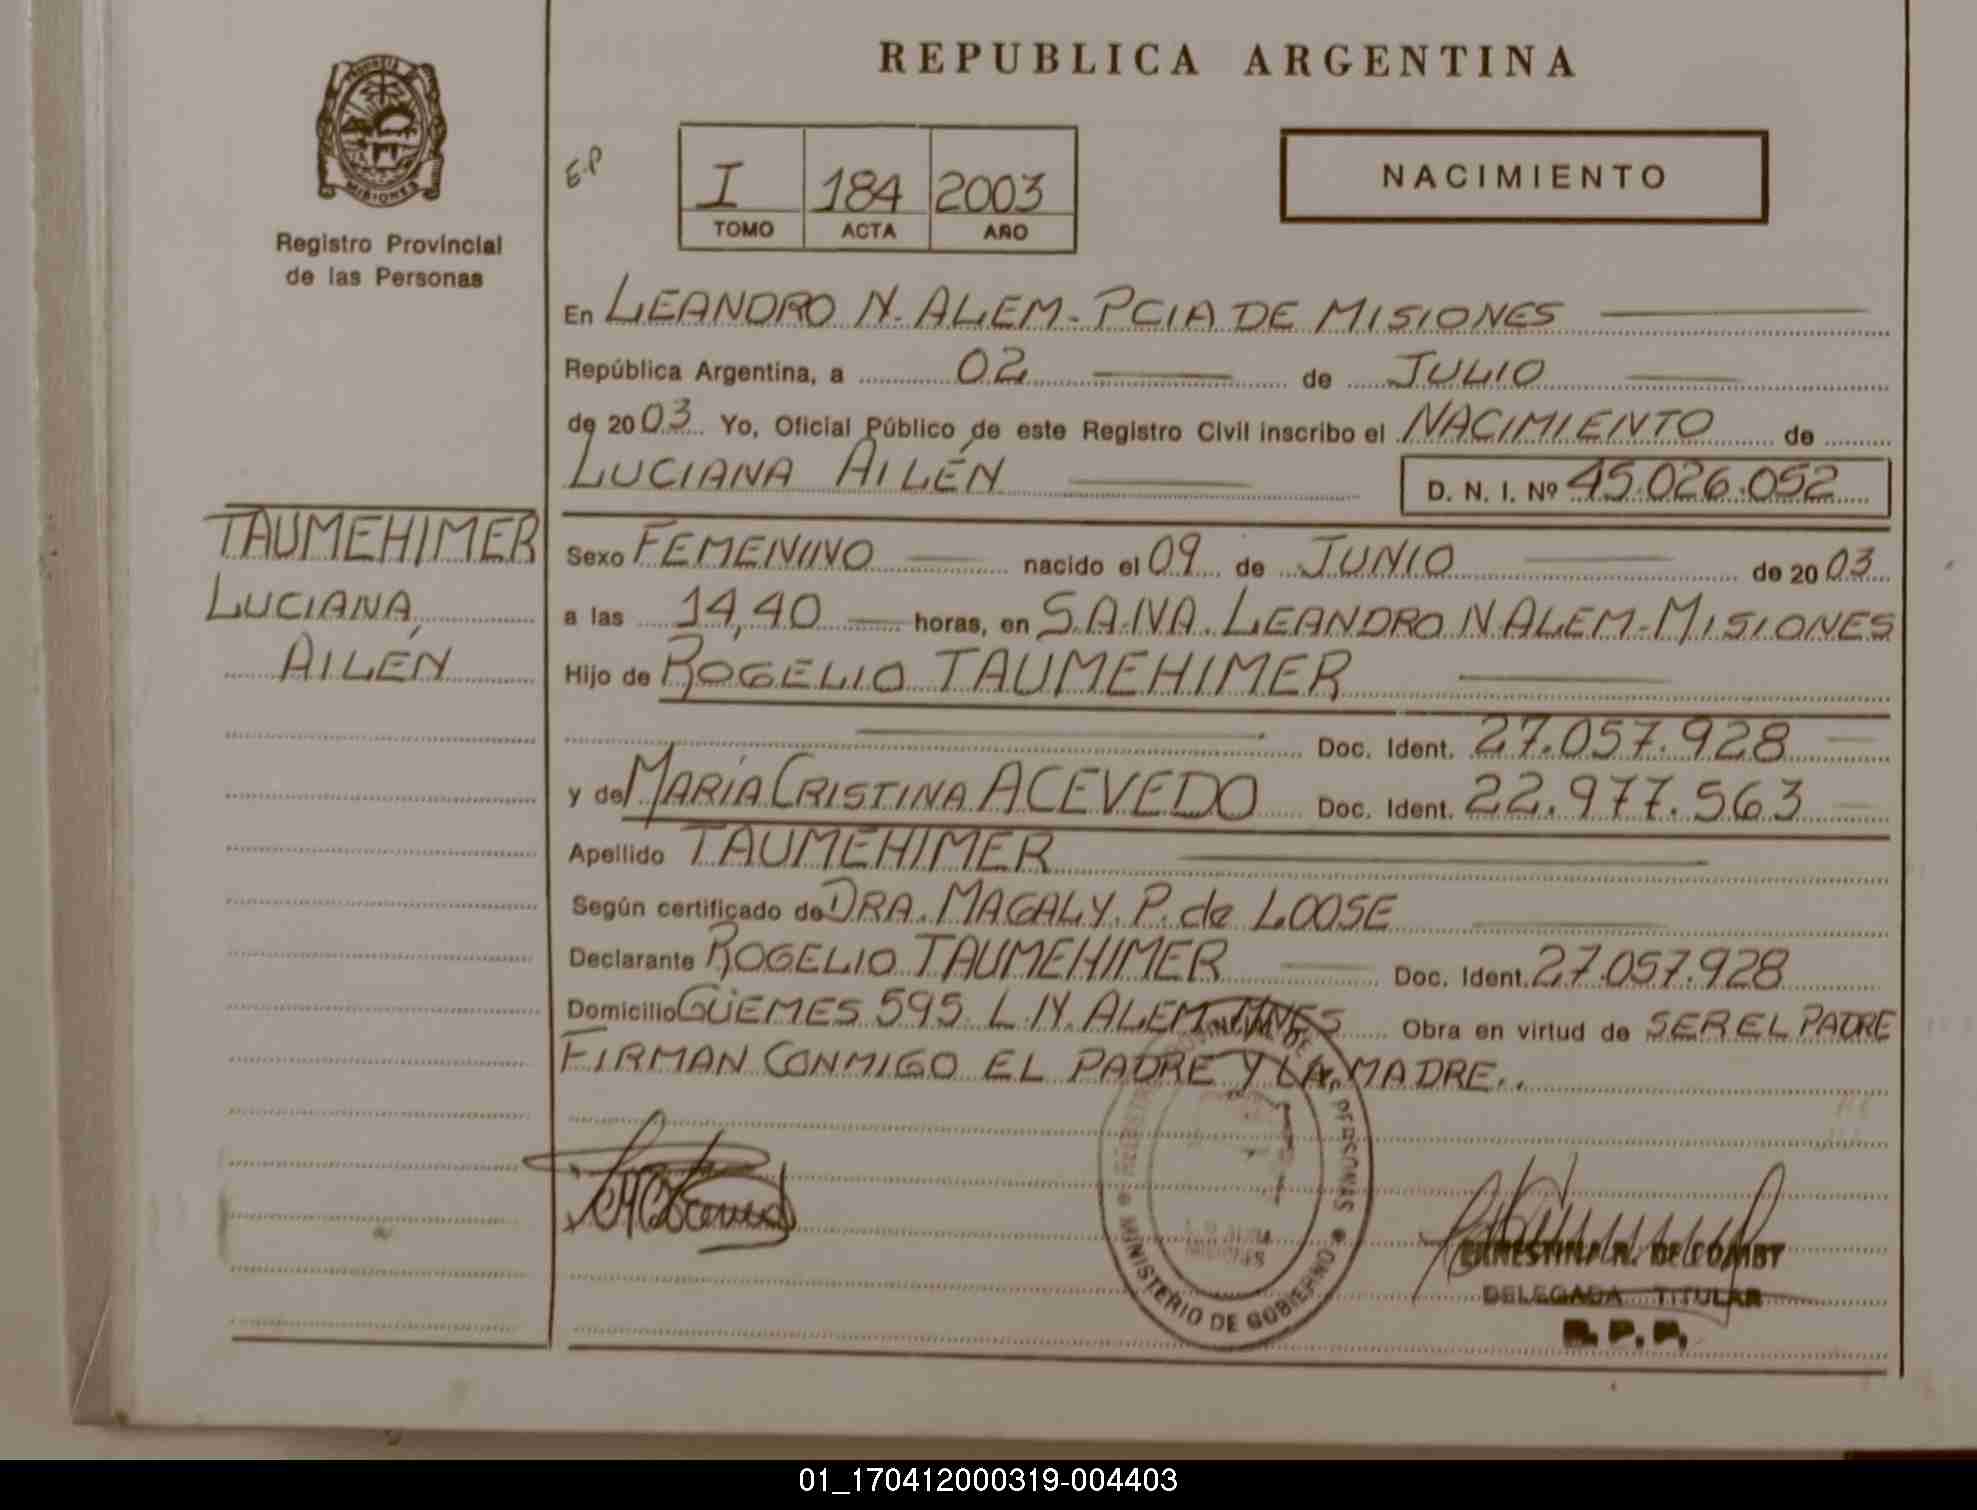 REPUBLICA ARGENTINA
PROVINCIA DE MISIONES
Registro Provincial
de las Personas
E.P
I 184 2003
TOMO ACTA AÑO
NACIMIENTO
En LEANDRO N. ALEM - PCIA DE MISIONES
República Argentina, a 02 de JULIO
de 2003 Yo, Oficial Público de este Registro Civil inscribo el NACIMIENTO de
LUCIANA AILÉN
D. N. I. Nº 45.026.052
TAUMEHIMER
LUCIANA
AILÉN
Sexo FEMENINO nacido el 09 de JUNIO de 2003
a las 14,40 horas, en S.A.N.A. LEANDRO N ALEM - MISIONES
Hijo de ROGELIO TAUMEHIMER
Doc. Ident. 27.057.928
y de MARÍA CRISTINA ACEVEDO Doc. Ident. 22.977.563
Apellido TAUMEHIMER
Según certificado de DRA. MAGALY. P. de LOOSE
Declarante ROGELIO TAUMEHIMER Doc. Ident. 27.057.928
Domicilio GÜEMES 595. L.N. ALEM. MNES Obra en virtud de SER EL PADRE
FIRMAN CONMIGO EL PADRE Y LA MADRE..
DE PERSONAS
MINISTERIO DE GOBIERNO
ERNESTINA R. DE COMBY
DELEGADA TITULAR
R. P. P.
01_170412000319-004403